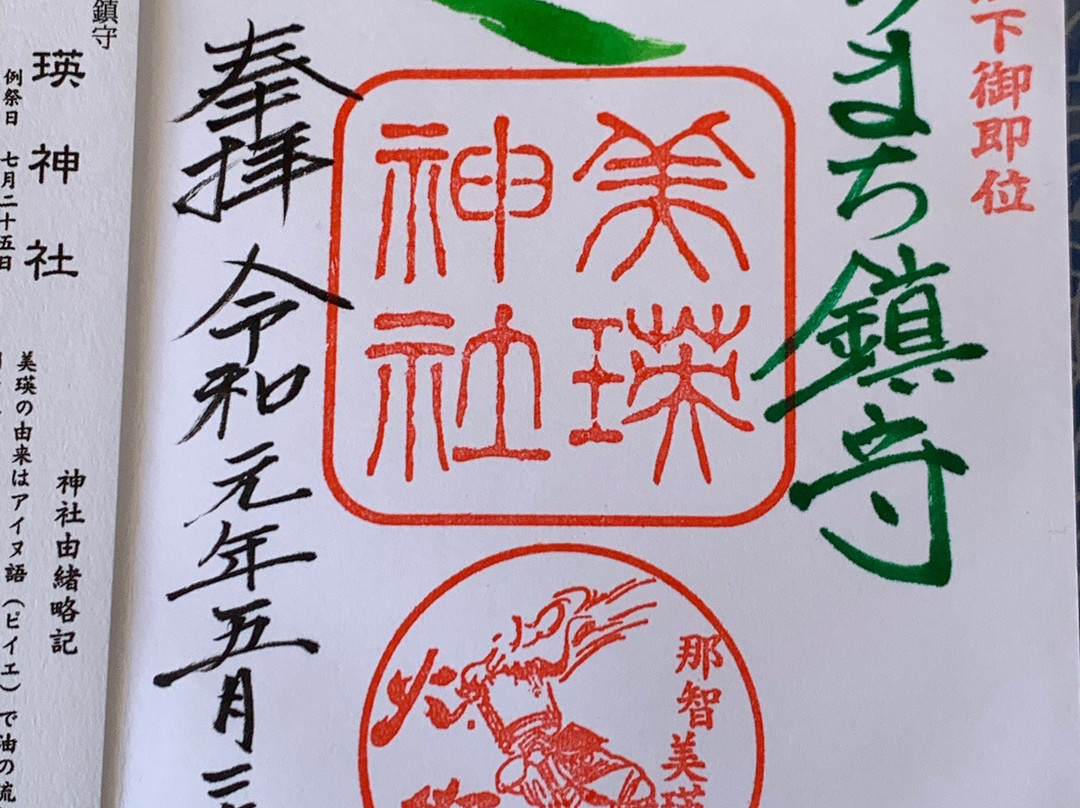 下御即位
まち鎮守
美瑛
神社
那智美瑛
火
奉拝 令和元年五月
鎮守
瑛神社
例祭日 七月二十五日
神社由緒略記
美瑛の由来はアイヌ語(ピイエ)で油の流